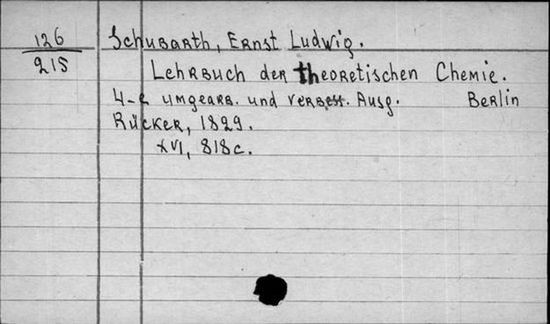 126
215
Schubarth, Ernst Ludwig.
Lehrbuch der theoretischen Chemie.
4-e umgearb. und verbess. Ausg. Berlin
Rücker, 1829.
XVI, 818c.